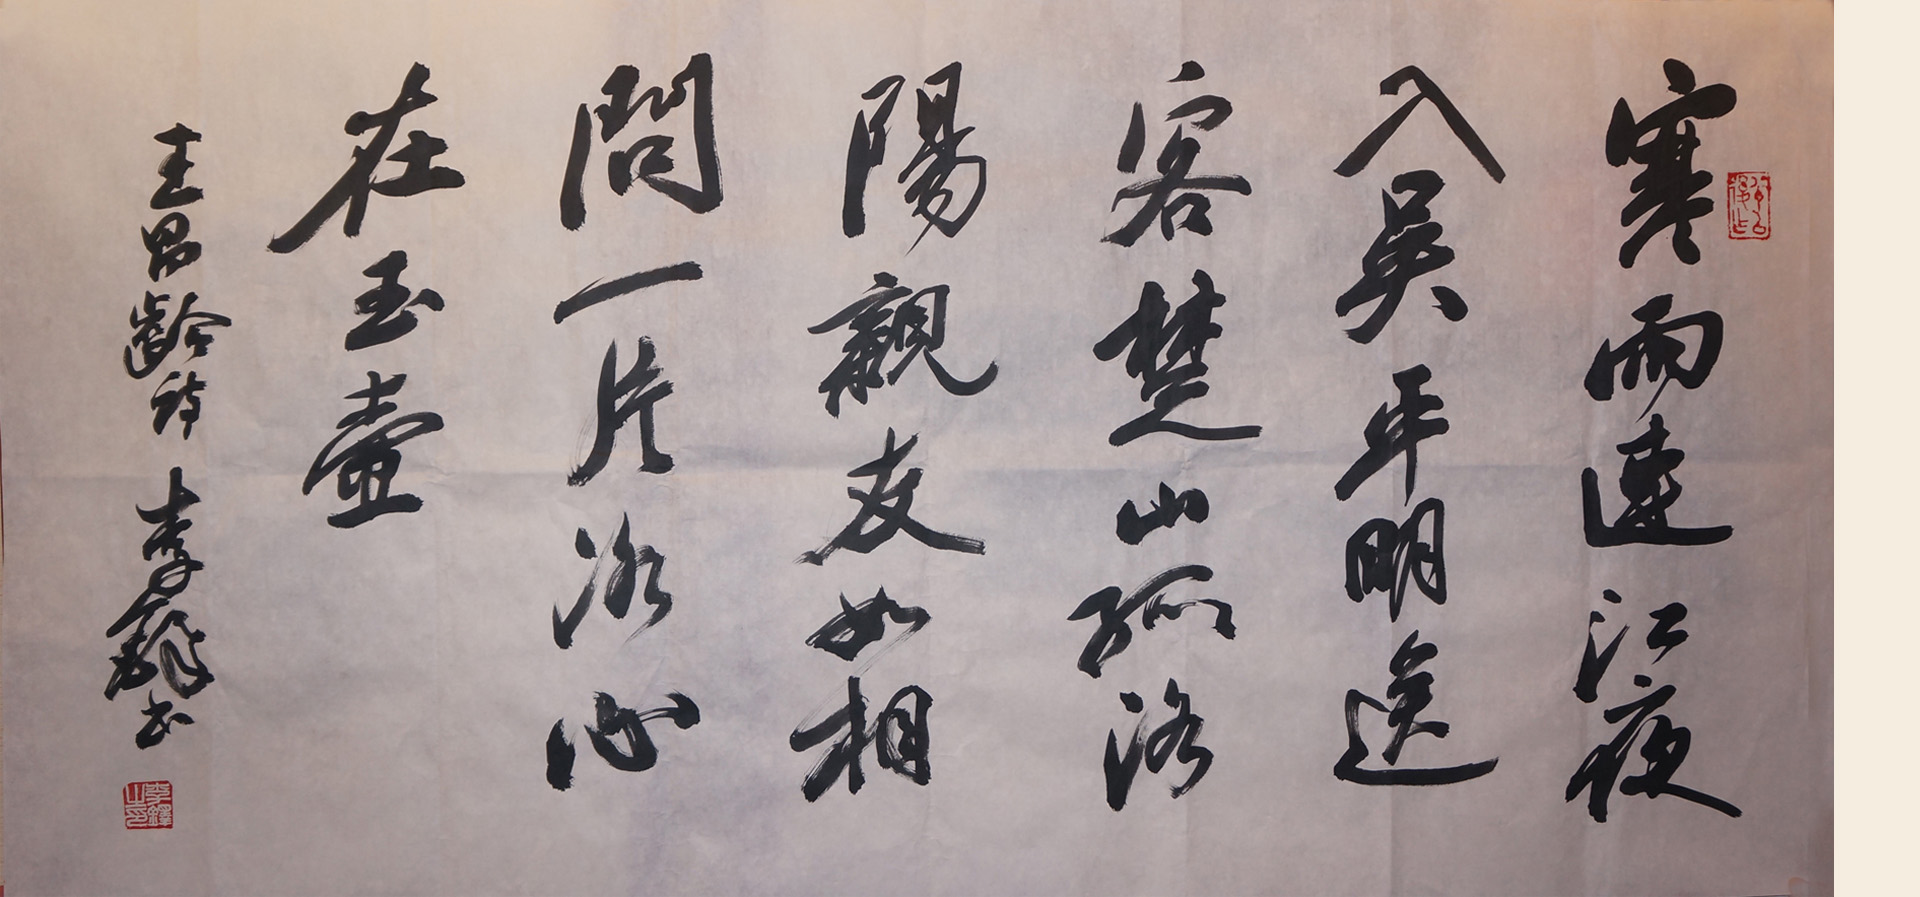 寒雨連江夜
入吳平明送
客楚山孤洛
陽親友如相
問一片冰心
在玉壺
王昌齡詩 李鐸书
李鐸之印